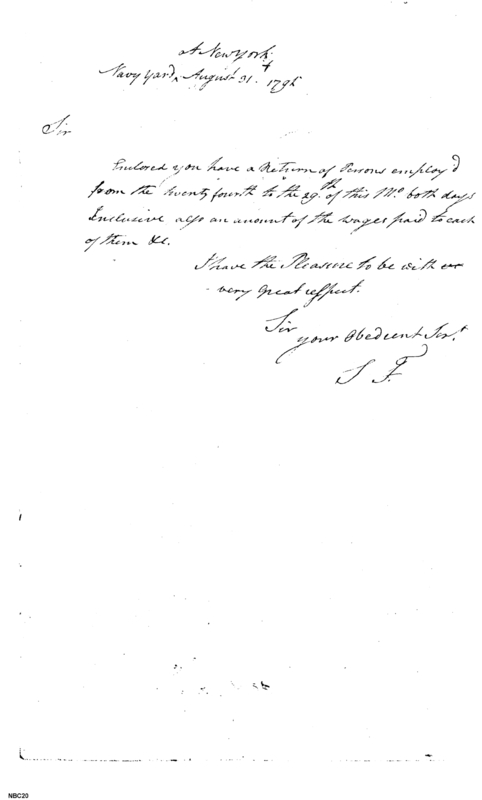 at New York
Navy Yard, August 31st 1795
Sir
Enclosed you have a Return of Persons employ'd
from the twenty fourth to the 29.th of this Mo. both days
Inclusive also an amount of the wages paid to each
of them &c.
I have the Pleasure to be with
very great respect.
Sir
your Obedient Ser.t
J F.
NBC20